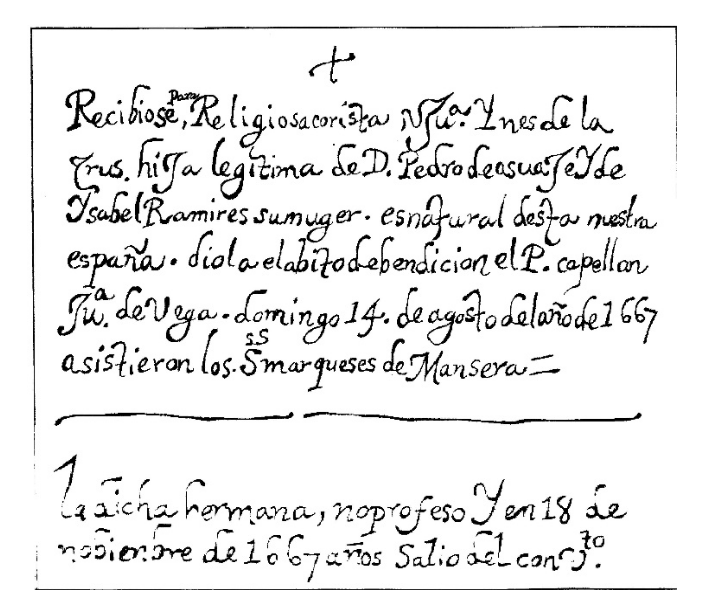 Recibiose, para Religiosa corista Juª. Ynes de la
Crus. hiJa legitima de D. Pedro de asuaJe Y de
Ysabel Ramires su muger. es natural desta nuestra
españa. diola el abito de bendicion el P. capellan
Juª. de Vega. domingo 14. de agosto del año de 1667
asistieron los. SSS marqueses de Mansera =
La dicha hermana, no profeso Y en 18 de
nobienbre de 1667 años Salio del convto.